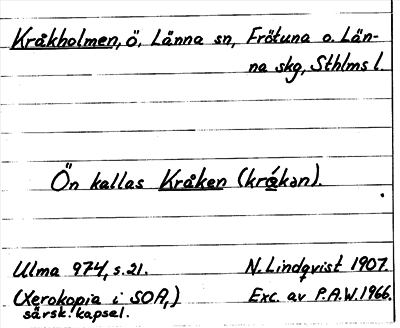 Kråkholmen, ö. Länna sn, Frötuna o. Län-
na skg, Sthlms l.
Ön kallas Kråken (krǻkən).
Ulma 974, s. 21. N. Lindqvist 1907.
(Xerokopia i SOA,) Exc. av P.A.W. 1966.
särsk. kapsel.